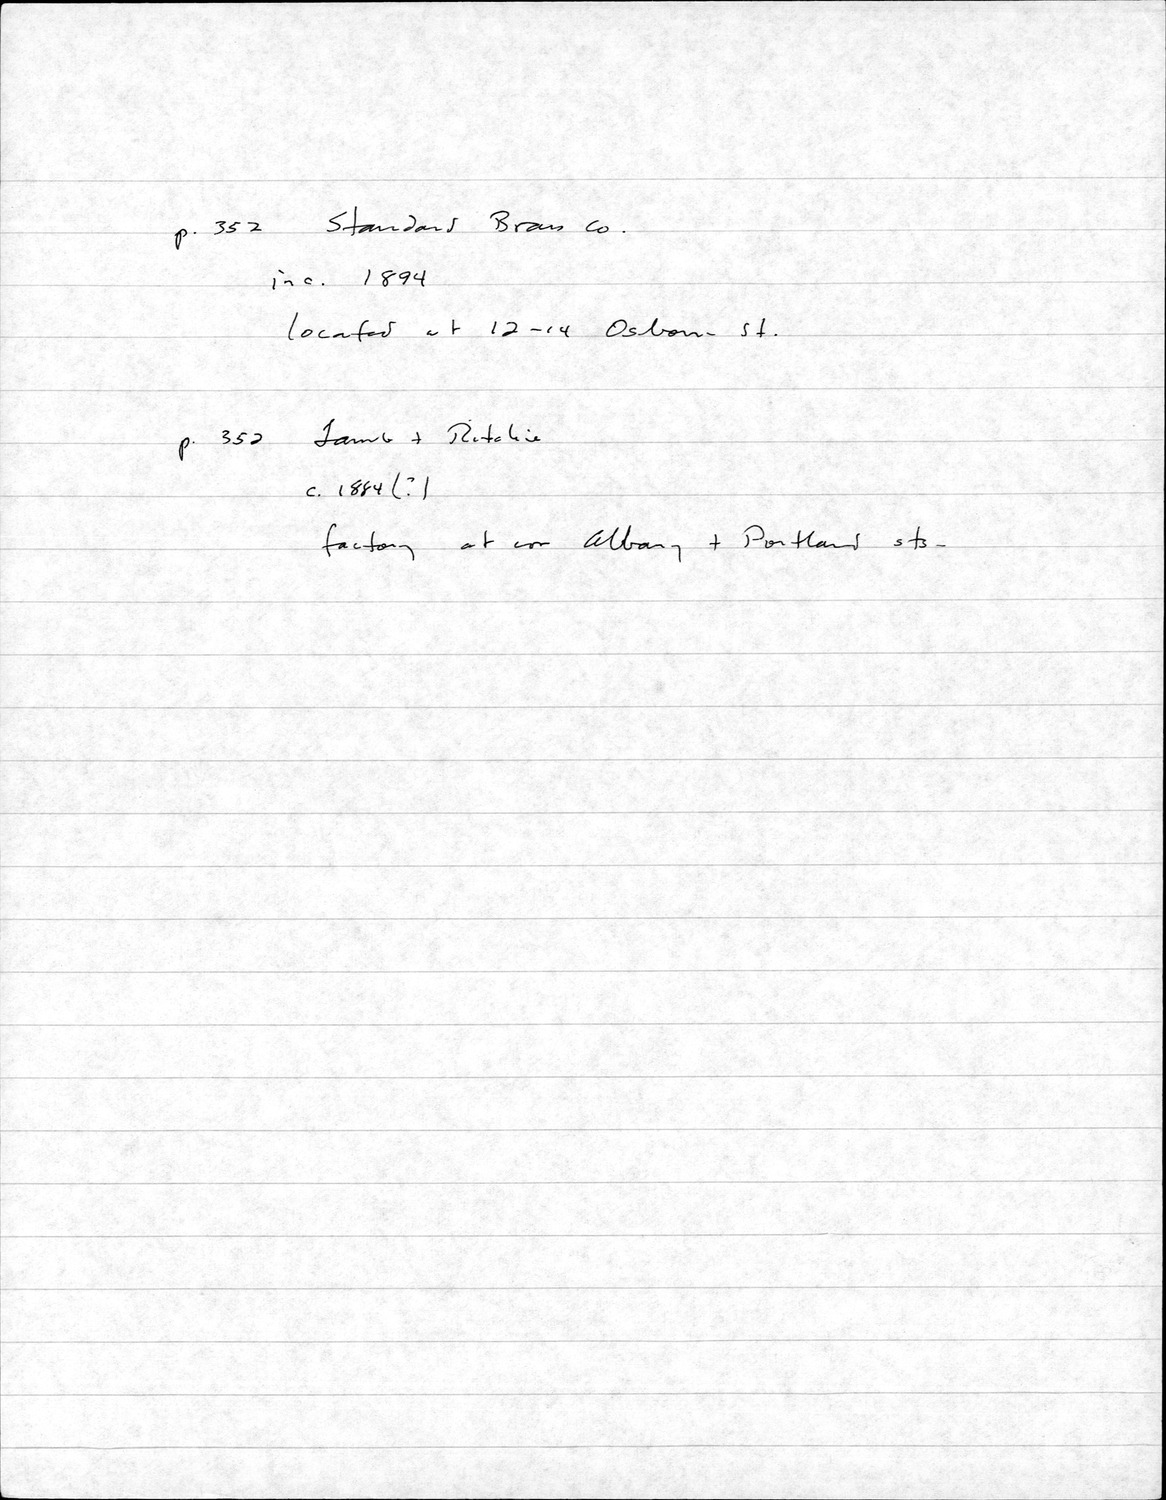 p. 352 Standard Brass Co.
inc. 1894
located at 12-14 Osborn st.
p. 352 Lamb + Ritchie
c. 1884 (?)
factory at cor Albany + Portland sts.